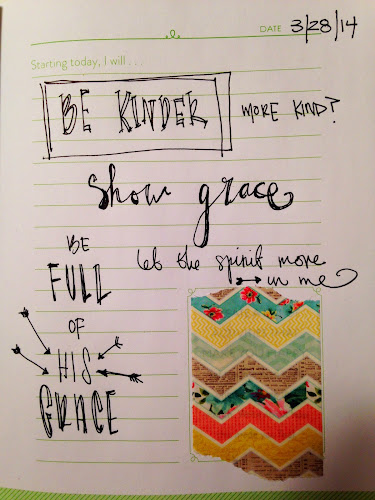 DATE 3/28/14
Starting today, I will . . .
BE KINDER
MORE KIND?
Show grace
BE
FULL
OF
HIS
GRACE
let the spirit move
in me